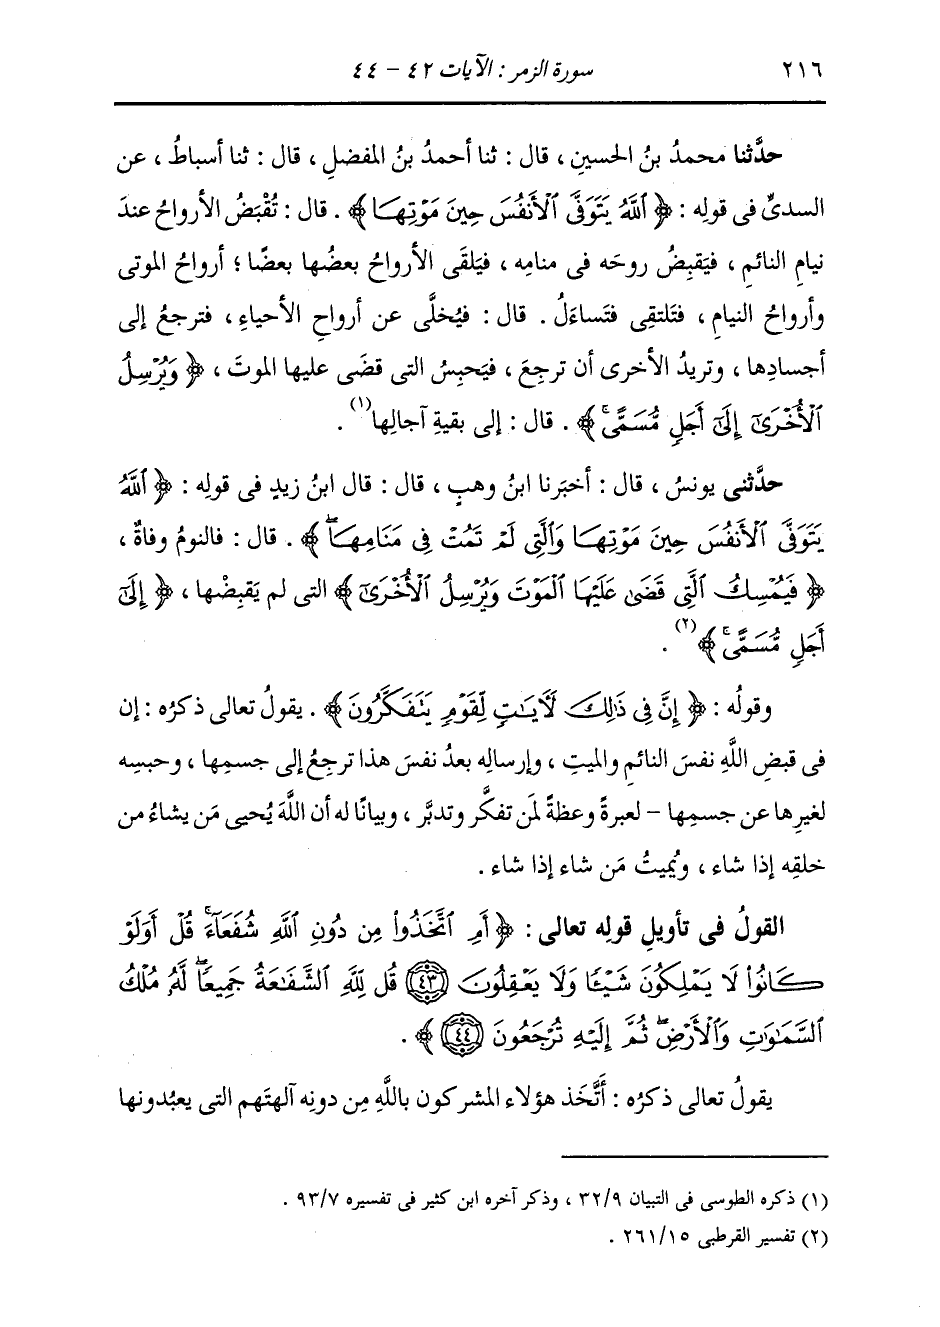 ٢١٦ سورة الزمر : الآيات ٤٢ - ٤٤
حدَّثنا محمدُ بنُ الحسينِ ، قال : ثنا أحمدُ بنُ المفضلِ ، قال : ثنا أسباطُ ، عن
السدىِّ فى قولِه : ﴿ ٱللَّهُ يَتَوَفَّى ٱلْأَنفُسَ حِينَ مَوْتِهَا ﴾ . قال : تُقْبَضُ الأرواحُ عندَ
نيامِ النائمِ ، فيَقبِضُ روحَه فى منامِه ، فيَلقَى الأرواحُ بعضُها بعضًا ؛ أرواحُ الموتى
وأرواحُ النيامِ ، فتَلتقِى فتَساءَلُ . قال : فيُخلَّى عن أرواحِ الأحياءِ ، فترجعُ إلى
أجسادِها ، وتريدُ الأخرى أن ترجِعَ ، فيَحبِسُ التى قضَى عليها الموتَ ، ﴿ وَيُرْسِلُ
ٱلْأُخْرَىٰٓ إِلَىٰٓ أَجَلٍ مُّسَمًّىۚ ﴾ . قال : إلى بقيةِ آجالِها(١) .
حدَّثنى يونسُ ، قال : أخبَرنا ابنُ وهبٍ ، قال : قال ابنُ زيدٍ فى قولِه : ﴿ ٱللَّهُ
يَتَوَفَّى ٱلْأَنفُسَ حِينَ مَوْتِهَا وَٱلَّتِى لَمْ تَمُتْ فِى مَنَامِهَاۖ ﴾ . قال : فالنومُ وفاةٌ ،
﴿ فَيُمْسِكُ ٱلَّتِى قَضَىٰ عَلَيْهَا ٱلْمَوْتَ وَيُرْسِلُ ٱلْأُخْرَىٰٓ ﴾ التى لم يَقبِضْها ، ﴿ إِلَىٰٓ
أَجَلٍ مُّسَمًّىۚ ﴾(٢) .
وقولُه : ﴿ إِنَّ فِى ذَٰلِكَ لَأٓيَٰتٍ لِّقَوْمٍ يَتَفَكَّرُونَ ﴾ . يقولُ تعالى ذكرُه : إن
فى قبضِ اللَّهِ نفسَ النائمِ والميتِ ، وإرسالِه بعدُ نفسَ هذا ترجِعُ إلى جسمِها ، وحبسِه
لغيرِها عن جسمِها - لعبرةً وعظةً لمَن تفكَّر وتدبَّر ، وبيانًا له أن اللَّهَ يُحيى مَن يشاءُ من
خلقِه إذا شاء ، ويُميتُ مَن شاء إذا شاء .
القولُ فى تأويلِ قولِه تعالى : ﴿ أَمِ ٱتَّخَذُوا۟ مِن دُونِ ٱللَّهِ شُفَعَآءَۚ قُلْ أَوَلَوْ
كَانُوا۟ لَا يَمْلِكُونَ شَيْـًٔا وَلَا يَعْقِلُونَ ﴿٤٣﴾ قُل لِّلَّهِ ٱلشَّفَٰعَةُ جَمِيعًاۖ لَّهُۥ مُلْكُ
ٱلسَّمَٰوَٰتِ وَٱلْأَرْضِۖ ثُمَّ إِلَيْهِ تُرْجَعُونَ ﴿٤٤﴾ ﴾ .
يقولُ تعالى ذكرُه : أَتَّخَذ هؤلاء المشركون باللَّهِ مِن دونِه آلهتَهم التى يعبُدونها
(١) ذكره الطوسى فى التبيان ٣٢/٩ ، وذكر آخره ابن كثير فى تفسيره ٩٣/٧ .
(٢) تفسير القرطبى ٢٦١/١٥ .